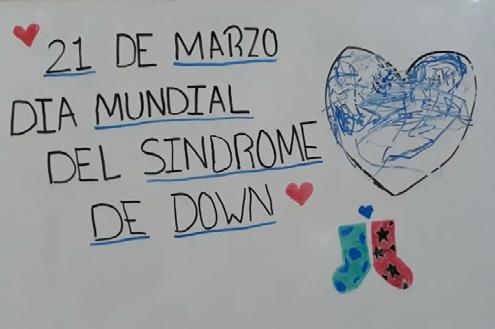 21 DE MARZO
DIA MUNDIAL
DEL SINDROME
DE DOWN